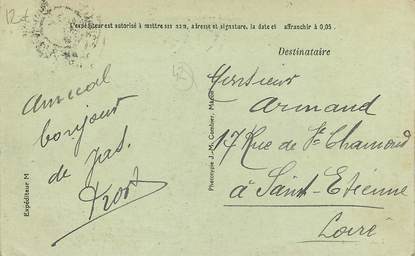 L'expéditeur est autorisé à mettre ses nom, adresse et signature, la date et affranchir à 0,05.
Destinataire
Amical
bonjour
de
Monsieur
Armand
17 Rue de St Chamond
à Saint-Etienne
Loire
Expéditeur M
Phototypie J.-M. Combier, Mâcon